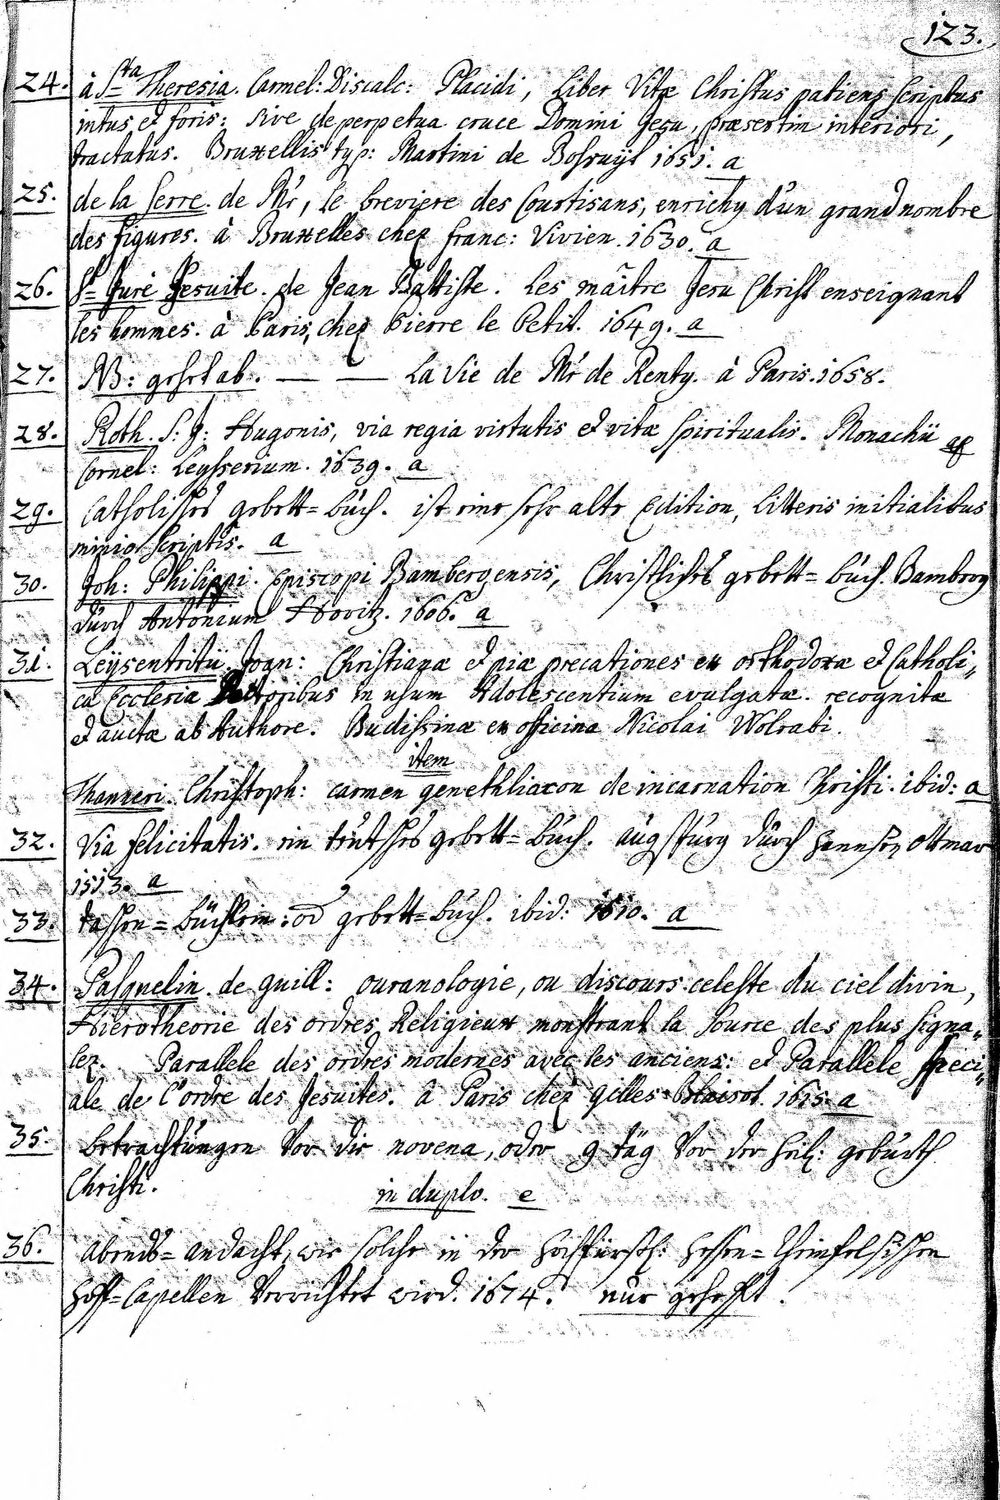 123.
24. à Sta Theresia. Carmel: Discalc: Placidi, Liber Vitæ Christus patiens scriptus
intus et foris: sive de perpetua cruce Domini Jesu, præsertim interiori,
tractatus. Bruxellis typ: Martini de Bossuyt 1651. a
25. de la Serre. de Mr, le breviere des Courtisans, enrichy d'un grand nombre
des figures. à Bruxelles chez franc: Vivien. 1630. a
26. St Juré Jesuite. de Jean Battiste. Les mâitre Jesu Christ enseignant
les hommes. à Paris, chez Pierre le Petit. 1649. a
27. NB: gehet ab. — — La Vie de Mr de Renty. à Paris. 1658.
28. Roth. S: J: Hugonis, via regia virtutis et vitæ spiritualis. Monachii ap
Cornel: Leysserium. 1639. a
29. Catholisches gebett=buch. ist eine sehr alte Edition, Litteris initialibus
minio scriptis. a
30. Joh: Philippi. Episcopi Bambergensis, Christliches gebett=buch. Bamberg
durch Antonium Horitz. 1606. a
31. Leÿsentritii. Joan: Christianæ et piæ precationes ex orthodoxæ et Catholi„
cæ Ecclesiæ Doctoribus in usum Adolescentium evulgatæ. recognitæ
et auctæ ab Authore. Budissinæ ex officina Nicolai Wolrabi.
item
Thanneri. Christoph: carmen genethliacon de incarnation Christi. ibid: a
32. Via felicitatis. ein teutsches gebett=buch. augspurg durch Hannsen Ottmar
1513. a
33. taschen=büchlein: od gebett=buch. ibid: 1610. a
34. Pasquelin. de guill: ouranologie, ou discours celeste du ciel divin,
Hierotheorie des ordres Religieux monstrant la source des plus signa„
lez. Parallele des ordres modernes avec les anciens: et Parallele speci„
ale de l'ordre des Jesuites. à Paris chez gilles Blaisot. 1615. a
35. betrachtungen Vor die novena, oder 9 täg Vor der heil: geburth
Christi.
in duplo. e
36. Abends=andacht, wie solche in der Hochfürstl: Hessen=Rheinfelsischen
Hoff=Capellen Verrichtet wird. 1674. nur gehefft.